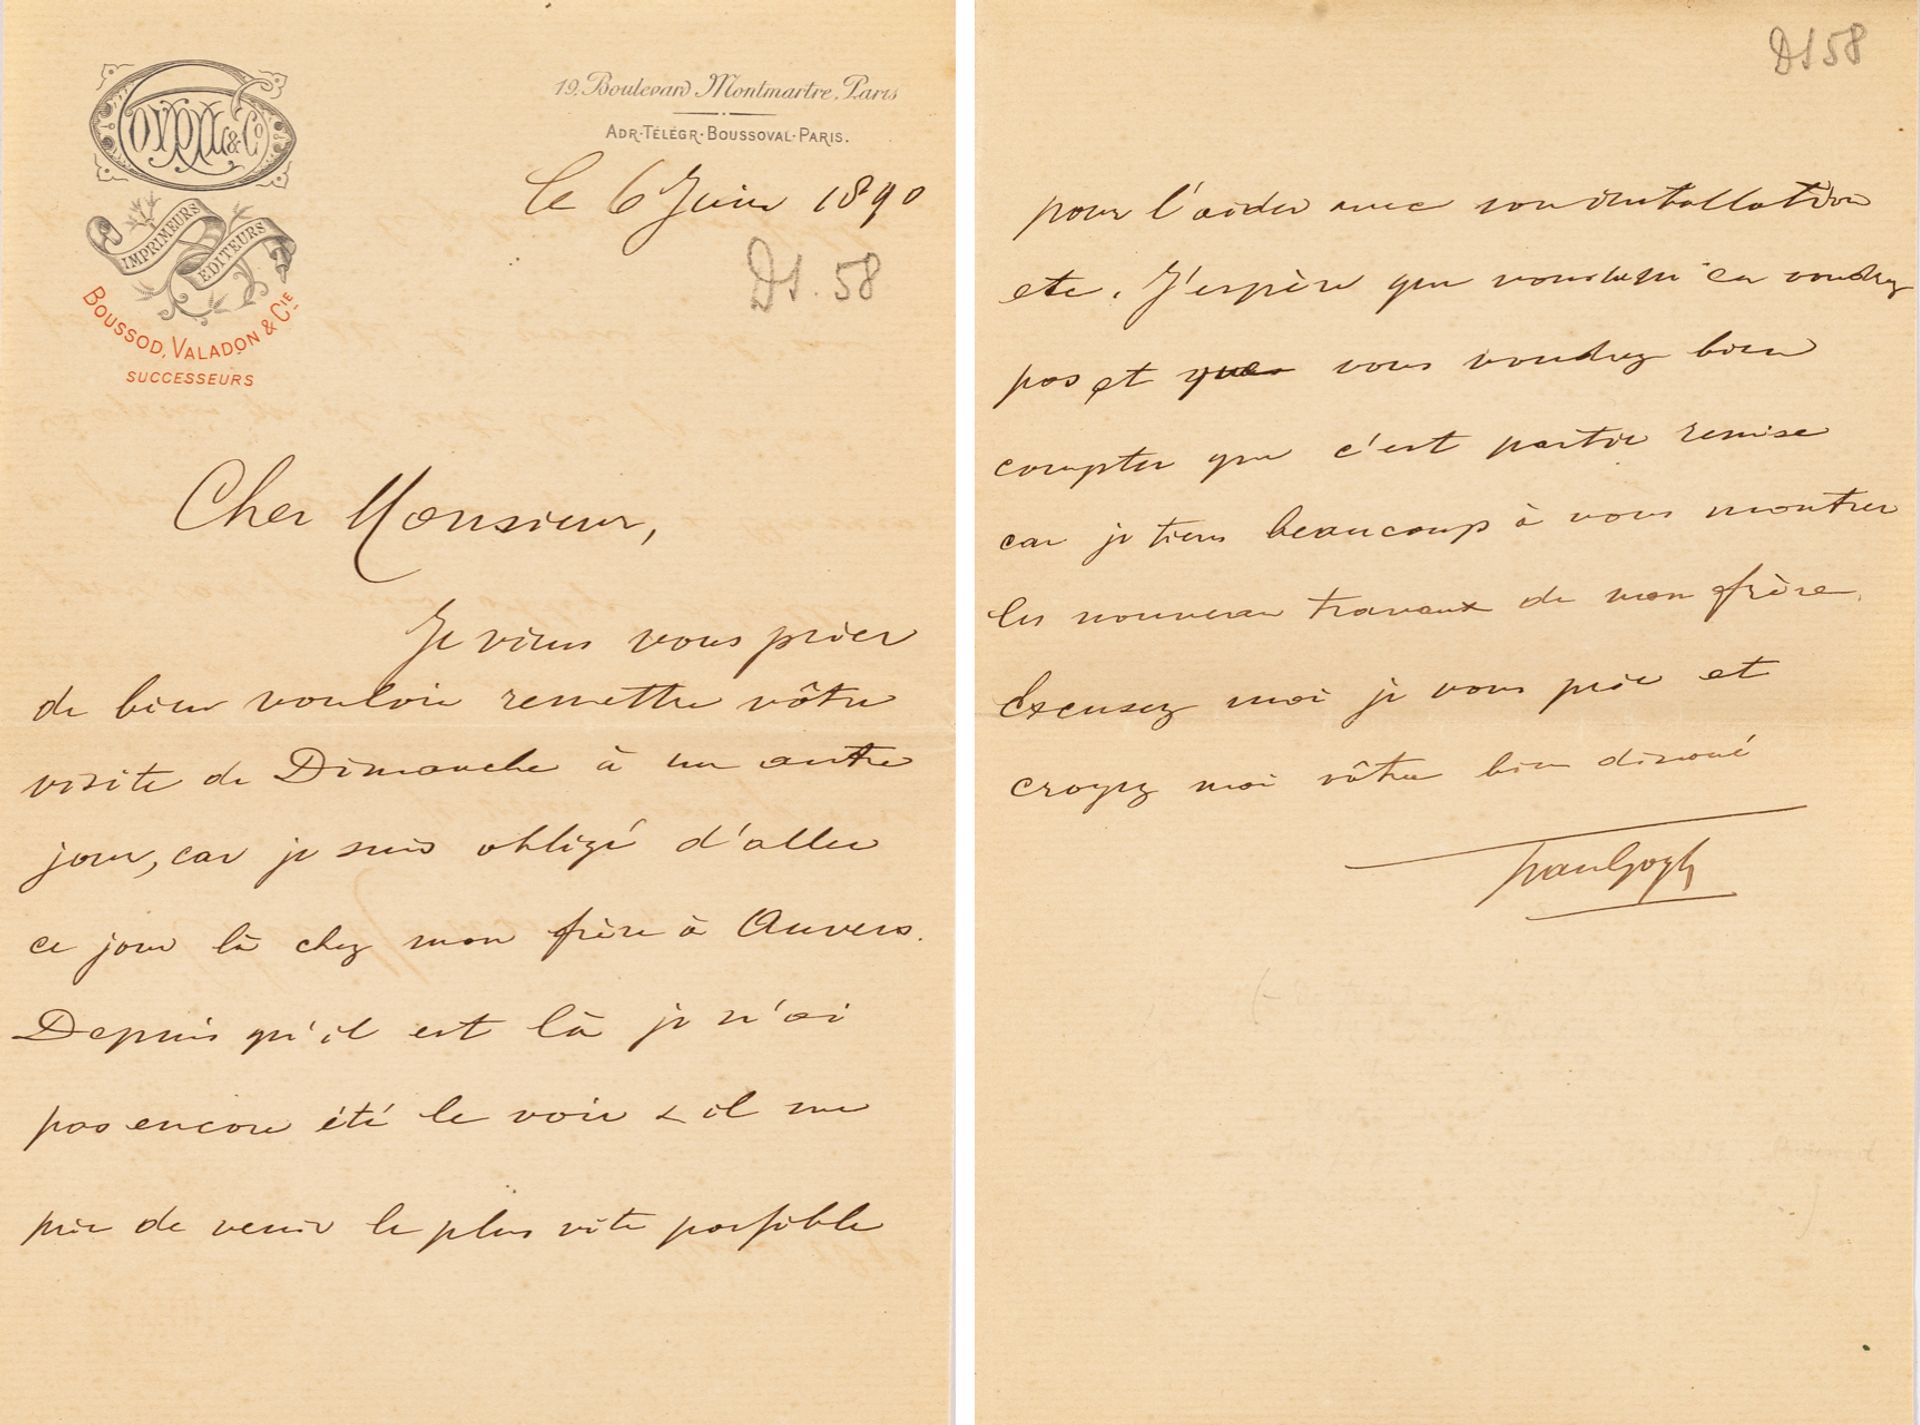 Goupil & Co
IMPRIMEURS
EDITEURS
BOUSSOD, VALADON & CIE
SUCCESSEURS
19, Boulevard Montmartre, Paris
ADR·TÉLÉGR·BOUSSOVAL·PARIS.
le 6 Juin 1890
DS. 58
Cher Monsieur,
Je viens vous prier
de bien vouloir remettre vôtre
visite de Dimanche à un autre
jour, car je suis obligé d'aller
ce jour là chez mon frère à Auvers.
Depuis qu'il est là je n'ai
pas encore été le voir & il me
prie de venir le plus vite possible
DS 58
pour l'aider avec son installation
etc. J'espère que vous m'en voudrez
pas et que vous voudrez bien
compter que c'est partie remise
car je tiens beaucoup à vous montrer
les nouveau travaux de mon frère.
Excusez moi je vous prie et
croyez moi vôtre bien dévoué
TvanGogh